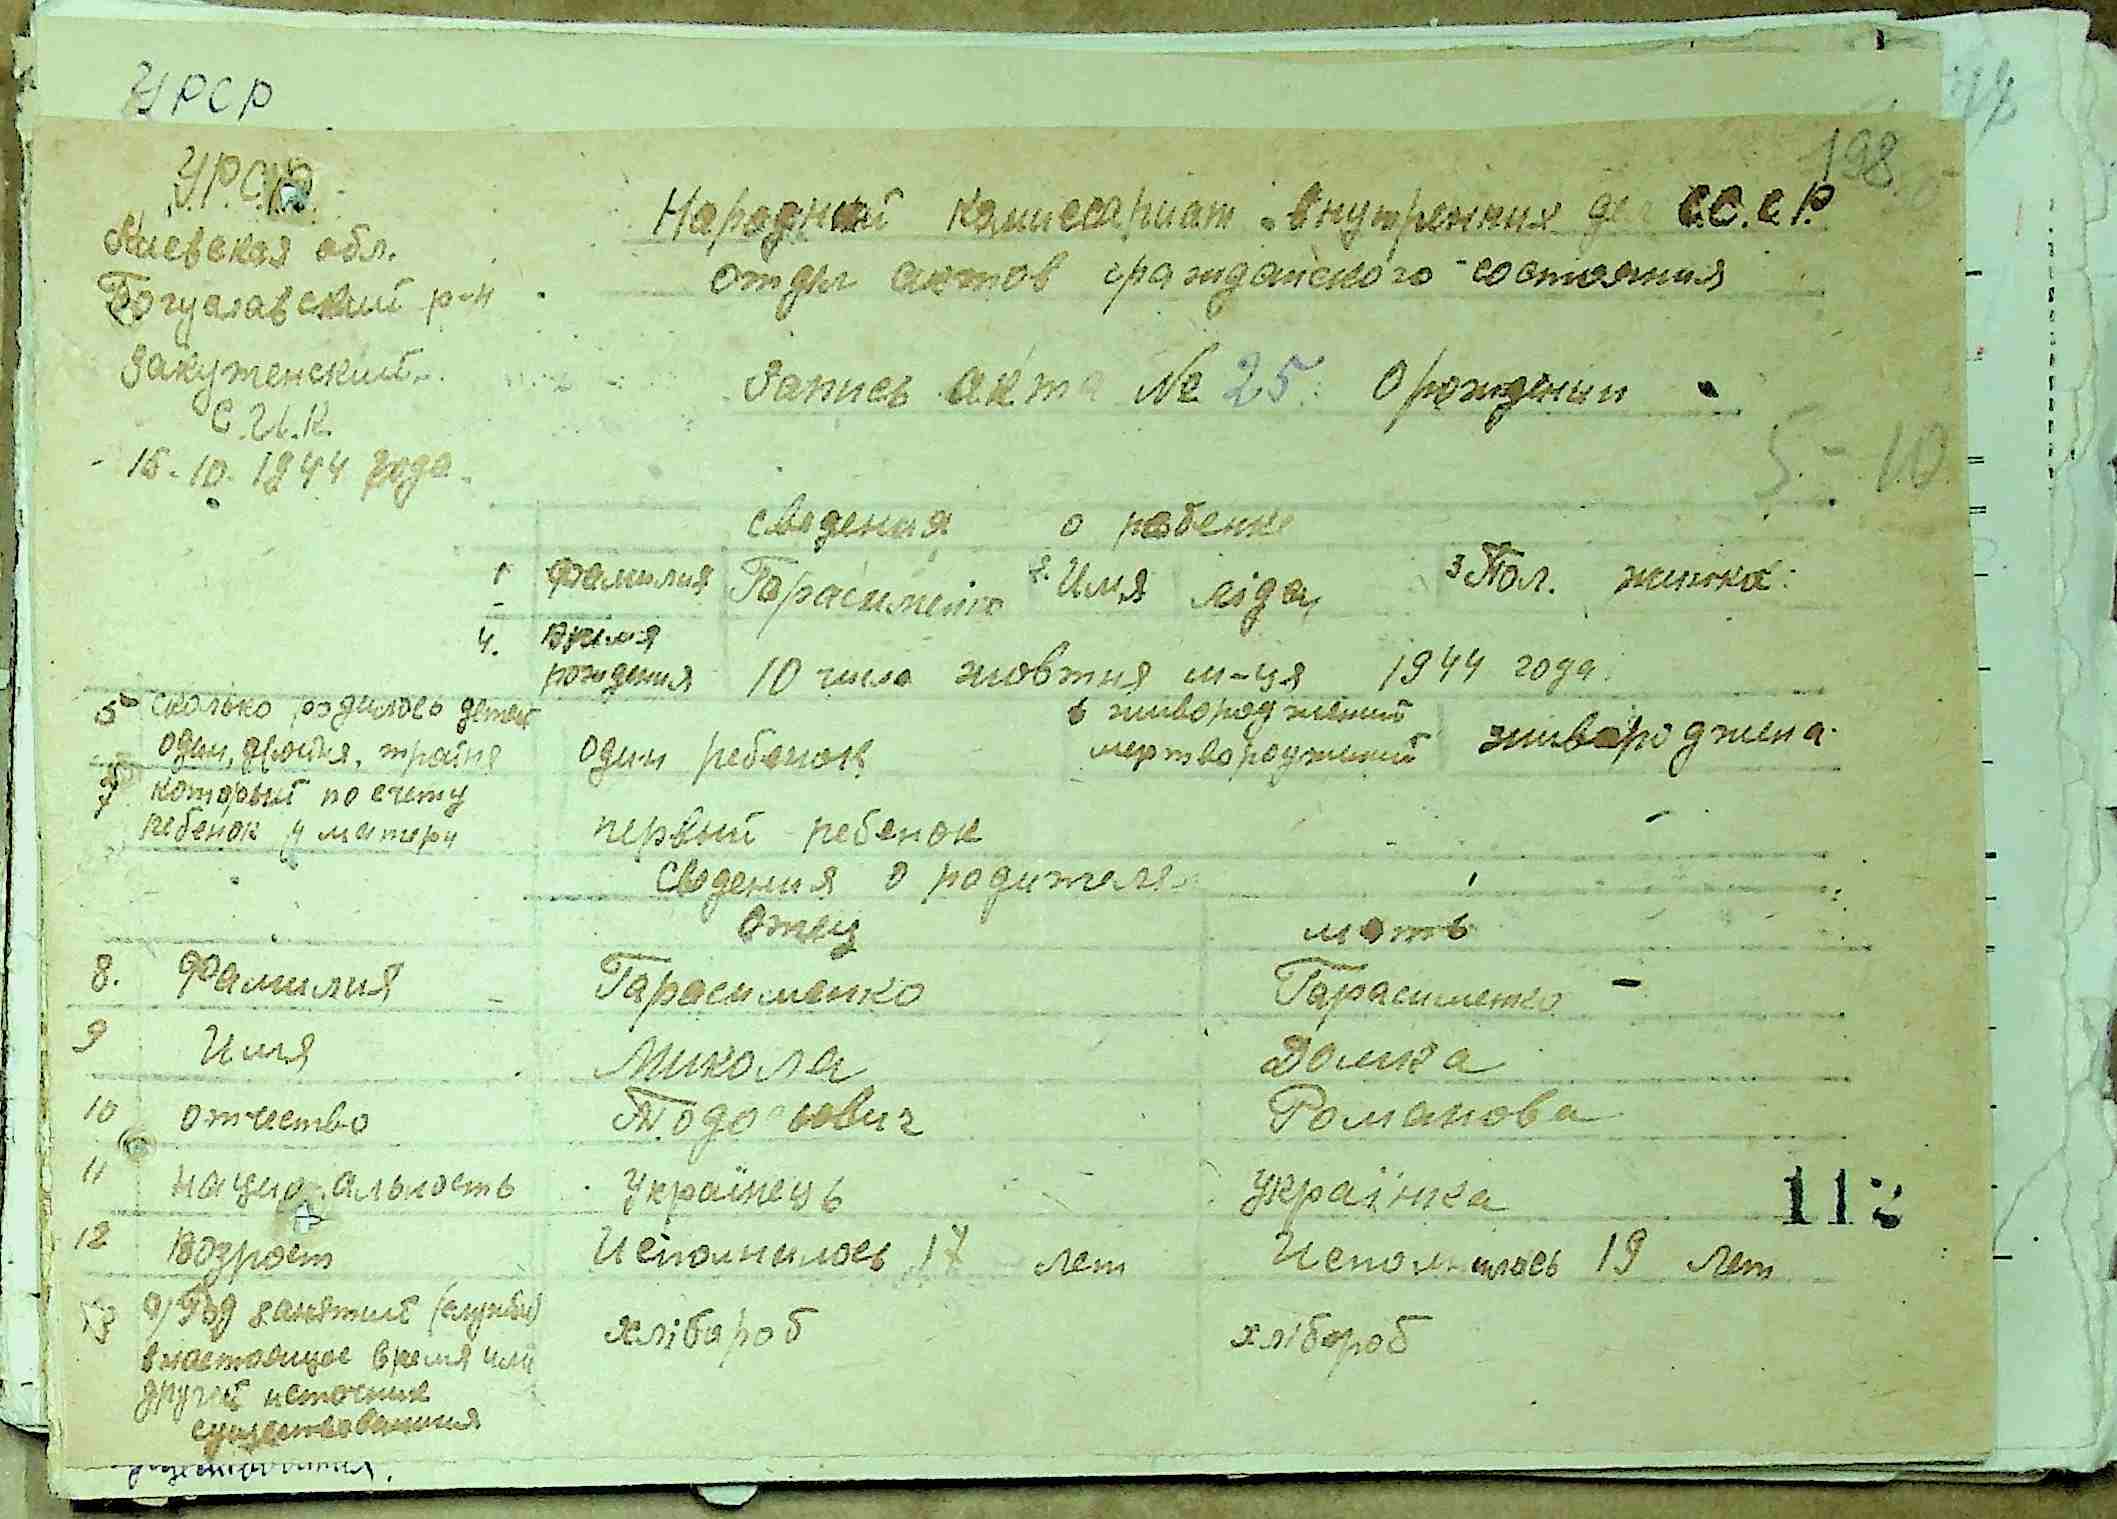 УРСР
У.Р.С.Р.
Киевская обл.
Богуславский р-н
Закутенский
С.И.К.
15-10-1944 года
198
Народный комиссариат внутренних дел С.С.С.Р.
отдел актов гражданского состояния
Запись акта № 25 О рождении
5-10
сведения о ребенке
1 Фамилия Гарасименко 2. Имя ліда 3 Пол. жіноча
4. время
рождения 10 числа жовтня м-ця 1944 года
5 сколько родилось детей
один, двойня, тройня один ребенок
6 живорожденный
мертворожденный живароджена
7 который по счету
ребенок у матери первый ребенок
Сведения о родителях
Отец мать
8. Фамилия Гарасименко Гарасименко
9 Имя Микола Домка
10 отчество Тодосиович Романова
11 национальность Українець Українка
112
12 возраст Исполнилось 17 лет Исполнилось 19 лет
13 а) Род занятий (службы)
в настоящее время или
другой источник
существования хлібароб хлібороб